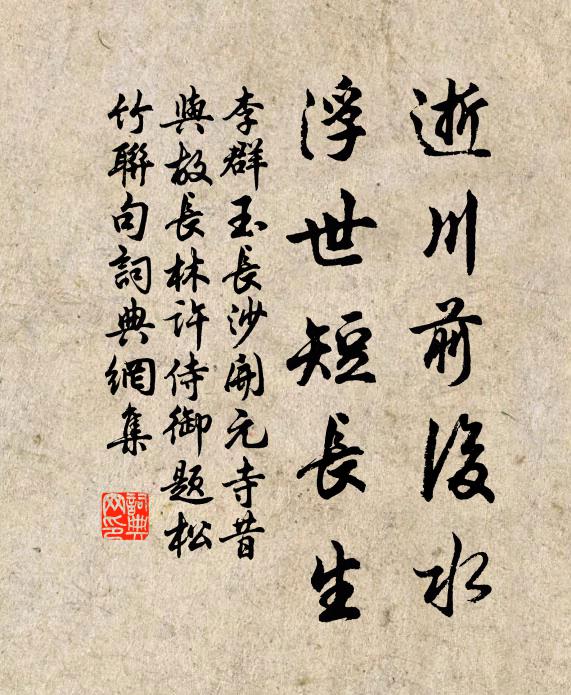 逝川前後水
浮世短長生
李群玉長沙開元寺昔
與故長林許侍御題松
竹聯句詞典網集
詞典網印